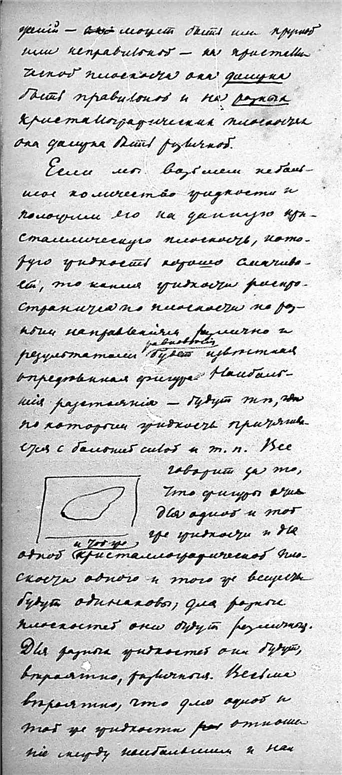 дкій — может быть или круглой
или неправильной — на кристалли-
ческой плоскости она должна
быть правильной и на разных
кристаллографических плоскостях
она должна быть различной.
Если мы возьмем неболь-
шое количество жидкости и
положим его на данную кри-
сталлическую плоскость, кото-
рую жидкость хорошо смачива-
ет, то капля жидкости распро-
странится по плоскости по раз-
ным направлениям различно и
равновесия
результатом будет известная
определенная фигура. Наиболь-
шія разстоянія — будут те, где
по которым жидкость притягива-
ется с большей силой и т. п. Все
говорит за то,
что фигуры эти
для одной и той
же жидкости и для
и той же
одной кристаллографической пло-
скости одного и того же вещества
будут одинаковы, для разных
плоскостей они будут различны.
Для разных жидкостей они будут,
вероятно, различны. Весьма
вероятно, что для одной и
той же жидкости отноше-
ніе между наибольшим и наи